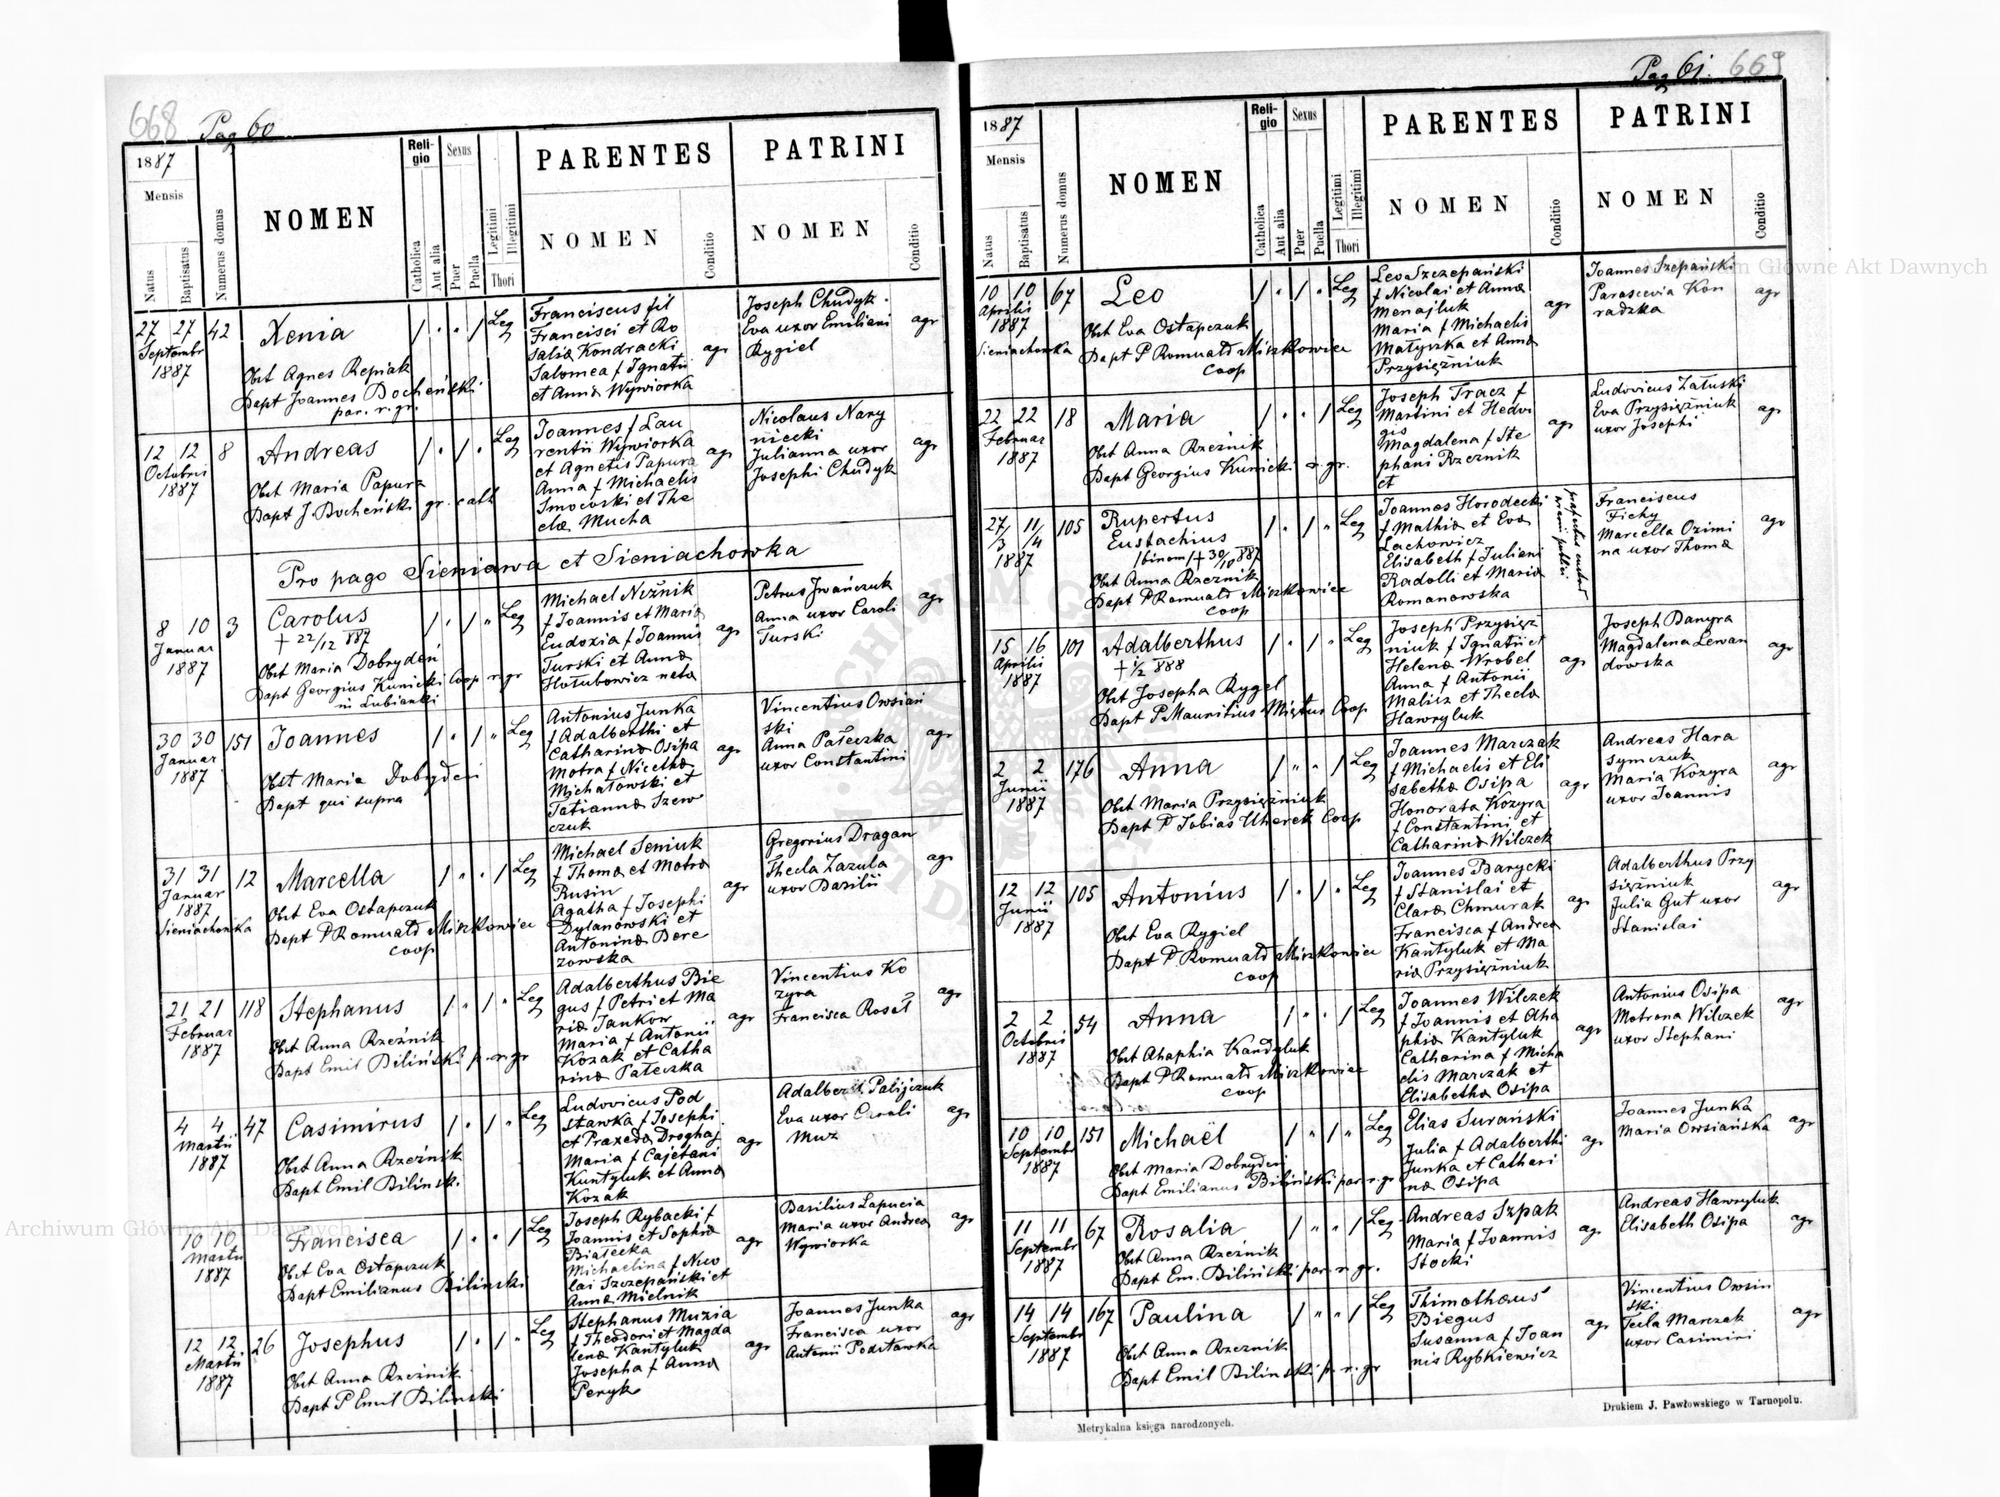 668 Pag 60
1887
Mensis
Natus
Baptisatus
Numerus domus
NOMEN
Religio
Catholica
Aut alia
Sexus
Puer
Puella
Legitimi
Illegitimi
Thori
PARENTES
NOMEN
Conditio
PATRINI
NOMEN
Conditio
27 27 42 Xenia / " " / Leg
Septembr
1887
Obst Agnes Repiak
Bapt Joannes Bocheński
par. r. gr.
Franciscus fil
Francisci et Ro
salia Kondracki
Salomea f Ignatii
et Anna Wywiorka
agr
Joseph Chudyk.
Eva uxor Emiliani
Rygiel
agr
12 12 8 Andreas / " / " Leg
Octobris
1887
Obst Maria Papura
Bapt J. Bocheński gr. cath
Joannes f Lau
rentii Wywiorka
et Agnetis Papura
Anna f Michaelis
Smocorski et The
cla Mucha
agr
Nicolaus Nary
niecki
Julianna uxor
Josephi Chudyk
agr
Pro pago Sieniawa et Sieniachowka
8 10 3 Carolus / " / " Leg
Januar
1887
+ 22/12 887
Obst Maria Dobrydeń
Bapt Georgius Kunicki Coop r. gr
in Lubianki
Michael Niżnik
f Joannis et Maria
Eudoxia f Joannis
Turski et Anna
Hołubowicz nata
agr
Petrus Iwańczuk
Anna uxor Caroli
Turski
agr
30 30 151 Joannes / " / " Leg
Januar
1887
Obst Maria Dobrydeń
Bapt qui supra
Antonius Junka
f Adalberthi et
Catharina Osipa
Motra f Nicetha
Michałowski et
Tatianna Szew
czuk
agr
Vincentius Owsiań
ski
Anna Pałeczka
uxor Constantini
agr
31 31 12 Marcella / " " / Leg
Januar
1887
Sieniachowka
Obst Eva Ostapczuk
Bapt P Romuald Miszkowicz
coop
Michael Seniuk
f Thoma et Motra
Rusin
Agatha f Josephi
Dylanowski et
Antonina Bere
zowska
agr
Gregorius Dragan
Thecla Zazula
uxor Basilii
agr
21 21 118 Stephanus / " / " Leg
Februar
1887
Obst Anna Rzeźnik
Bapt Emil Biliński p. r. gr
Adalberthus Bie
gus f Petri et Ma
ria Jankow
Maria f Antonii
Kozak et Catha
rina Pałeczka
agr
Vincentius Ko
zyra
Francisca Rosół
agr
4 4 47 Casimirus / " / " Leg
Martii
1887
Obst Anna Rzeźnik
Bapt Emil Bilinsk.
Ludovicus Pod
stawka f Josephi
et Praxeda Droghaj
Maria f Cajetani
Kuntyluk et Anna
Kozak
agr
Adalbert Palijczuk
Eva uxor Caroli
Muz
agr
10 10 Francisca / " " / Leg
Martii
1887
Obst Eva Ostapczuk
Bapt Emilianus Bilinski
Joseph Rybacki f
Joannis et Sophia
Białecka
Michaelina f Nico
lai Szczepański et
Anna Mielnik
agr
Basilius Lapucia
Maria uxor Andrea
Wywiorka
agr
12 12 26 Josephus / " / " Leg
Martii
1887
Obst Anna Rzeźnik
Bapt P Emil Bilinski
Stephanus Muzia
f Theodori et Magda
lena Kantyluk
Josepha f Anna
Peryk
agr
Joannes Junka
Francisca uxor
Antonii Podstawka
agr
Pag 61. 669
1887
Mensis
Natus
Baptisatus
Numerus domus
NOMEN
Religio
Catholica
Aut alia
Sexus
Puer
Puella
Legitimi
Illegitimi
Thori
PARENTES
NOMEN
Conditio
PATRINI
NOMEN
Conditio
10 10 67 Leo / " / " Leg
Aprilis
1887
Sieniachowka
Obst Eva Ostapczuk
Bapt P Romuald Miszkowicz
coop
Leo Szczepański
f Nicolai et Anna
Menajluk
Maria f Michaelis
Matyszka et Anna
Przysiężniuk
agr
Joannes Szepański
Parascevia Kon
radzka
agr
22 22 18 Maria / " " / Leg
Februar
1887
Obst Anna Rzeźnik
Bapt Georgius Kunicki r. gr.
Joseph Tracz f
Martini et Hedvi
gis
Magdalena f Ste
phani Rzeznik
et
agr
Ludovicus Załuski
Eva Przysiężniuk
uxor Josephi
agr
27/3 11/4 105 Rupertus / " / " Leg
1887
Eustachius
/binom/ + 30/10 887
Obst Anna Rzeźnik
Bapt P Romuald Miszkowicz
coop
Joannes Horodecki
f Mathia et Eva
Lachowicz
Elisabeth f Juliani
Radolli et Maria
Romanowska
Franciscus
Fichy
Marcella Ozimi
na uxor Thoma
agr
15 16 101 Adalberthus / " / " Leg
Aprilis
1887
+ 1/2 888
Obst Josepha Rygel
Bapt P Mauritius Miętus Coop
Joseph Przysięż
niuk f Ignatii et
Helena Wrobel
Anna f Antonii
Malicz et Thecla
Hawryluk
agr
Joseph Banyra
Magdalena Lewan
dowska
agr
2 2 176 Anna / " " / Leg
Junii
1887
Obst Maria Przysiężniuk
Bapt P Tobias Uherek Coop
Joannes Marczak
f Michaelis et Eli
sabetha Osipa
Honorata Kozyra
f Constantini et
Catharina Wilczek
agr
Andreas Hara
symczuk
Maria Kozyra
uxor Joannis
agr
12 12 105 Antonius / " / " Leg
Junii
1887
Obst Eva Rygiel
Bapt P Romuald Miszkowicz
coop
Joannes Barycki
f Stanislai et
Clara Chmurak
Francisca f Andrea
Kantyluk et Ma
ria Przysiężniuk
agr
Adalberthus Przy
siężniuk
Julia Gut uxor
Stanislai
agr
2 2 54 Anna / " " / Leg
Octobris
1887
Obst Ahaphia Kandyluk
Bapt P Romuald Miszkowicz
coop
Joannes Wilczek
f Joannis et Aha
phia Kantyluk
Catharina f Micha
elis Marczak et
Elisabetha Osipa
agr
Antonius Osipa
Motrona Wilczek
uxor Stephani
agr
10 10 151 Michaël / " / " Leg
Septembr
1887
Obst Maria Dobrydeń
Bapt Emilianus Biliński par r. gr
Elias Surański
Julia f Adalberthi
Junka et Cathari
na Osipa
agr
Joannes Junka
Maria Owsiańska
agr
11 11 67 Rosalia / " " / Leg
Septembr
1887
Obst Anna Rzeźnik
Bapt Em. Biliński par. r. gr.
Andreas Szpak
Maria f Joannis
Stocki
agr
Andreas Hawryluk
Elisabeth Osipa
agr
14 14 167 Paulina / " " / Leg
Septembr
1887
Obst Anna Rzeznik
Bapt Emil Biliński p. r. gr
Thimothaus
Biegus
Susanna f Joan
nis Rybkiewicz
agr
Vincentius Owsin
ski
Tecla Marczak
uxor Casimiri
agr
Metrykalna księga narodzonych.
Drukiem J. Pawłowskiego w Tarnopolu.
Archiwum Główne Akt Dawnych
Archiwum Główne Akt Dawnych